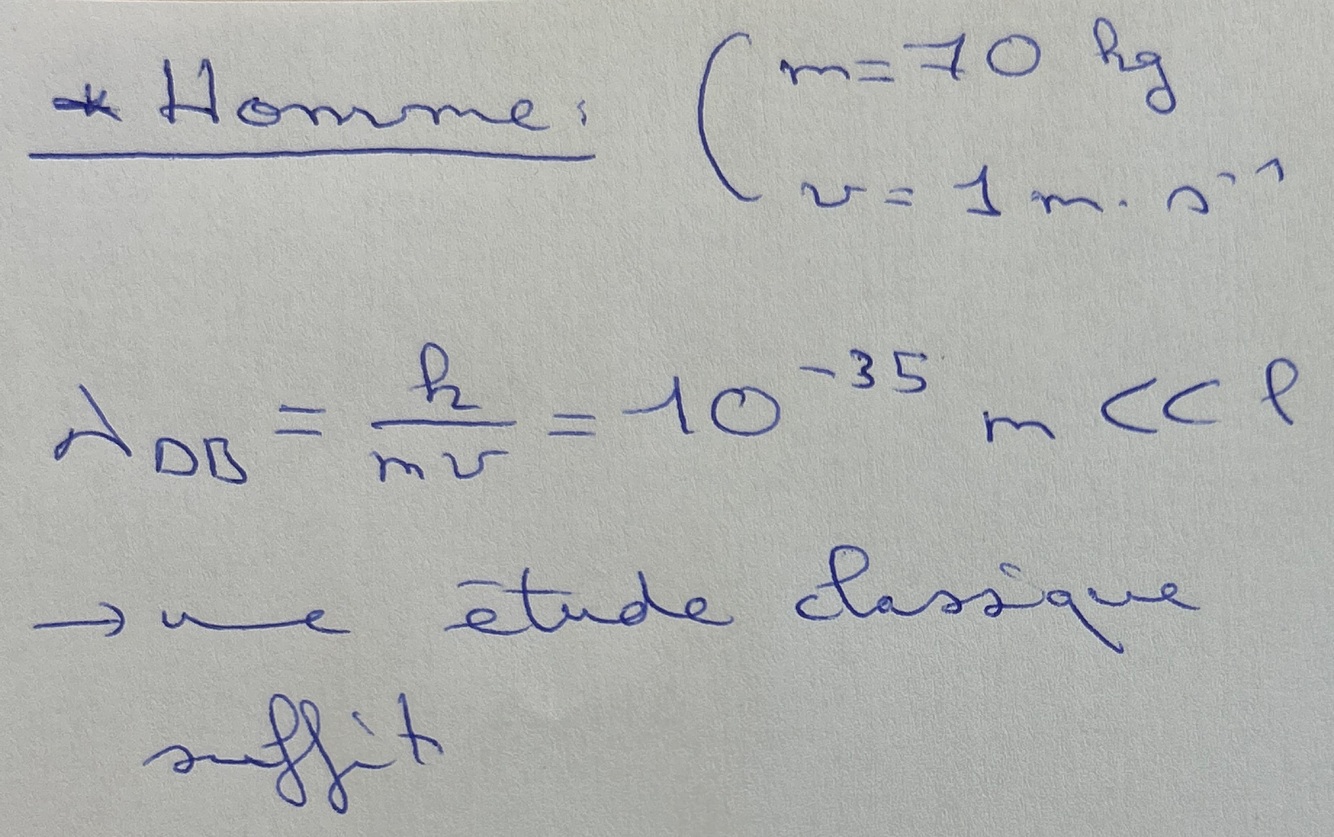 * Homme: ( m = 70 kg
v = 1 m. s⁻¹
λ_DB = h/mv = 10⁻³⁵ m << l
→ une étude classique
suffit